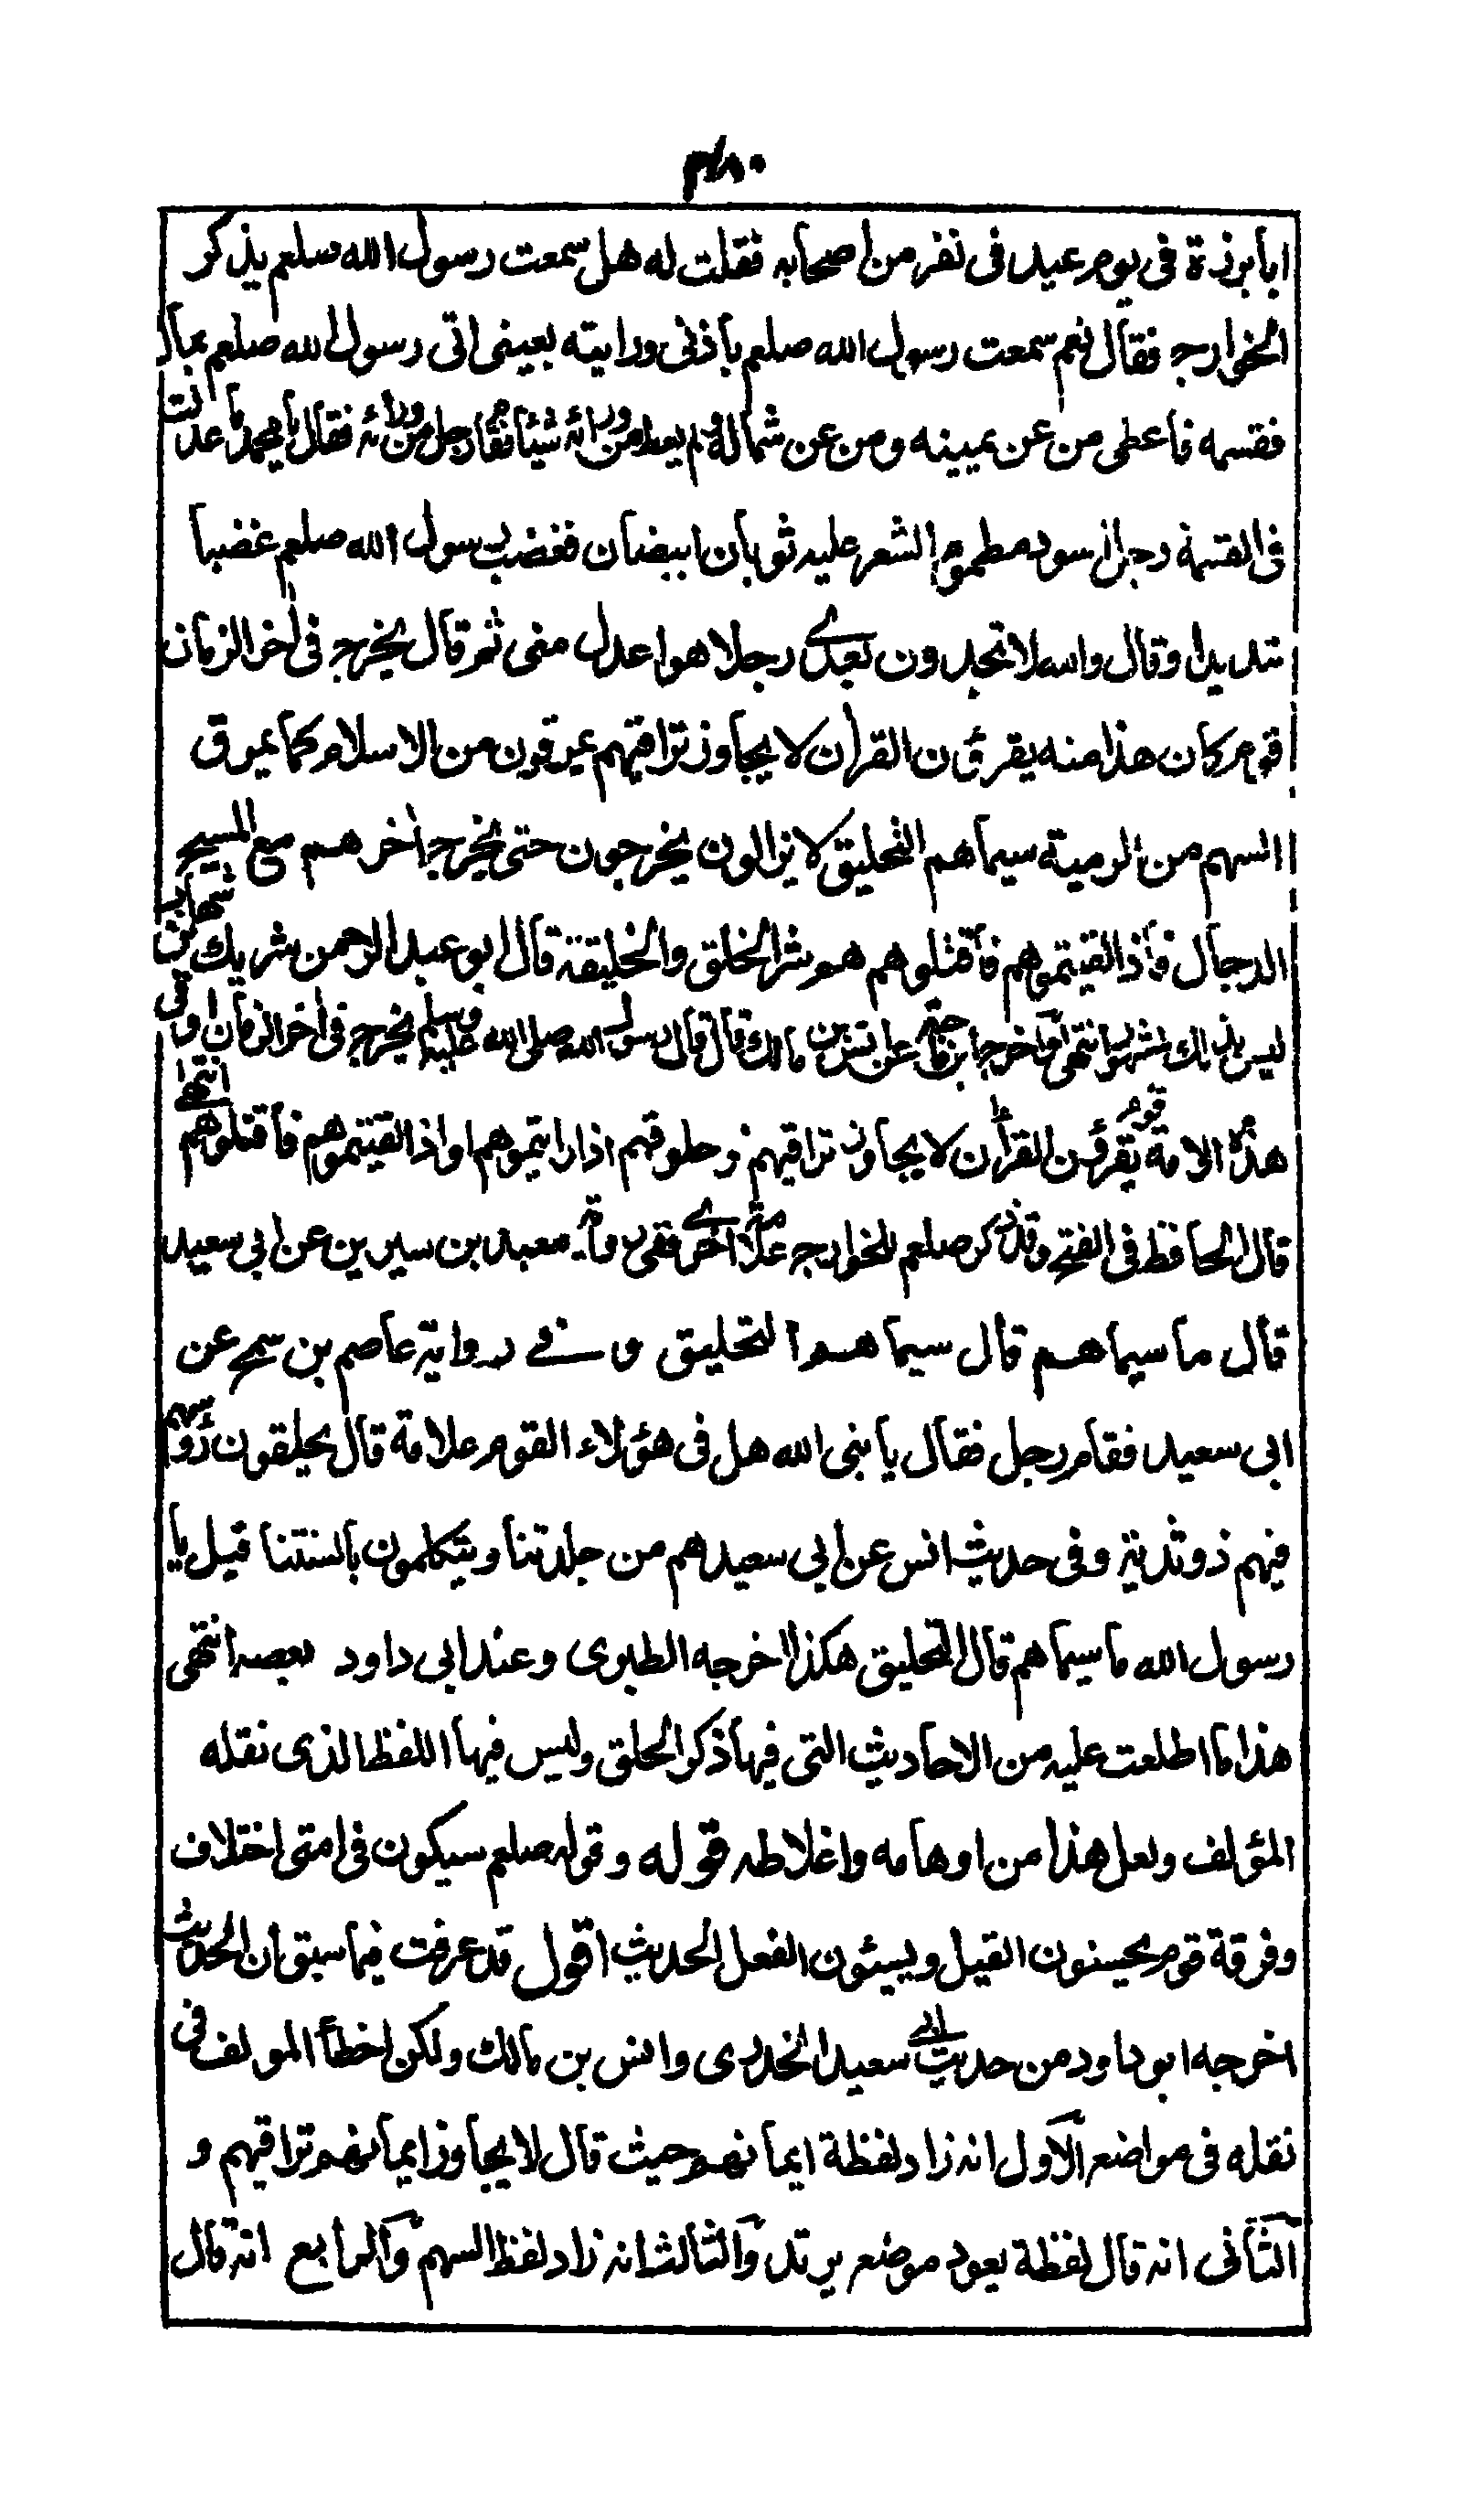 ۴۸۰
ابابرزة فى يوم عيد فى نفر من اصحابه فقلت له هل سمعت رسول الله صلعم يذكر
الخوارج فقال نعم سمعت رسول الله صلعم باذنى ورايته بعينى اتى رسول الله صلعم بمال
فقسمه فاعطى من عن يمينه ومن عن شماله ولم يعط من ورائه شيئا فقام رجل من ورائه فقال يا محمد ما عدلت
فى القسمة رجل اسود مطموم الشعر عليه ثوبان ابيضان فغضب رسول الله صلعم غضبا
شديدا وقال والله لا تجدون بعدى رجلا هو اعدل منى ثم قال يخرج فى اخر الزمان
قوم كان هذا منه يقرؤن القران لا يجاوز تراقيهم يمرقون من الاسلام كما يمرق
السهم من الرمية سيماهم التحليق لا يزالون يخرجون حتى يخرج اخرهم مع المسيح
الدجال فاذا لقيتموهم فاقتلوهم هم شر الخلق والخليقة قال ابو عبد الرحمن شريك بن شهاب
ليس بذلك مشهور انتهى واخرج ابن ماجة عن انس بن مالك قال قال رسول الله صلى الله عليه وسلم يخرج فى اخر الزمان او فى
هذه الامة قوم يقرؤن القرآن لا يجاوز تراقيهم او حلوقهم اذا رايتموهم او اذا لقيتموهم فاقتلوهم انتهى
قال الحافظ فى الفتح وقد ذكر صلعم للخوارج علامة اخرى ففى رواية معبد بن سيرين عن ابى سعيد
قال ما سيماهم قال سيماهم التحليق وفى رواية عاصم بن شمخ عن
ابى سعيد فقام رجل فقال يا نبى الله هل فى هؤلاء القوم علامة قال يحلقون رؤسهم
فيهم ذو ثدية وفى حديث انس عن ابى سعيد هم من جلدتنا ويتكلمون بالسنتنا قيل يا
رسول الله ما سيماهم قال التحليق هكذا اخرجه الطبرى وعند ابى داود بعضه انتهى
هذا ما اطلعت عليه من الاحاديث التى فيها ذكر الحلق وليس فيها اللفظ الذى نقله
المؤلف ولعل هذا من اوهامه واغلاطه قوله وقوله صلعم سيكون فى امتى اختلاف
وفرقة قوم يحسنون القيل ويسيئون الفعل الحديث اقول قد عرفت فيما سبق ان الحديث
اخرجه ابو داود من حديث ابى سعيد الخدرى وانس بن مالك ولكن اخطأ المولف فى
نقله فى مواضع الاول انه زاد لفظة ايمانهم حيث قال لا يجاوز ايمانهم تراقيهم و
الثانى انه قال لفظة يعود موضع يرتد والثالث انه زاد لفظ السهم والرابع انه قال